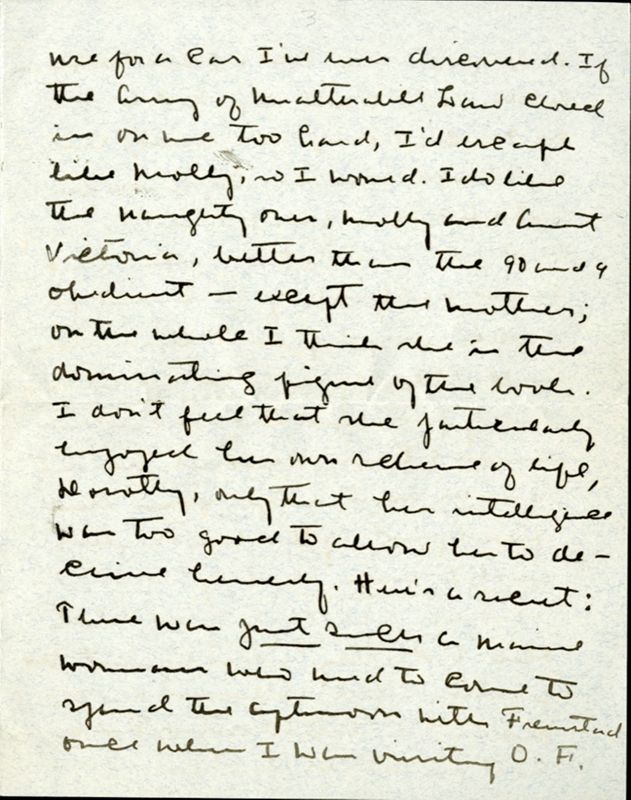 3
use for a car I've ever discovered. If
the Army of Unalterable Law closed
in on me too hard, I'd escape
like Molly, so I would. I do like
the naughty ones, Molly and Aunt
Victoria, better than the 90 and 9
obedient — except the mother;
on the whole I think she is the
dominating figure of the book.
I don't feel that she particularly
enjoyed her own scheme of life,
Dorothy, only that her intelligence
was too good to allow her to de-
ceive herself. Here's a secret:
There was just such a Maine
woman who used to come to
spend the afternoon with Fremstad
once when I was visiting O. F.